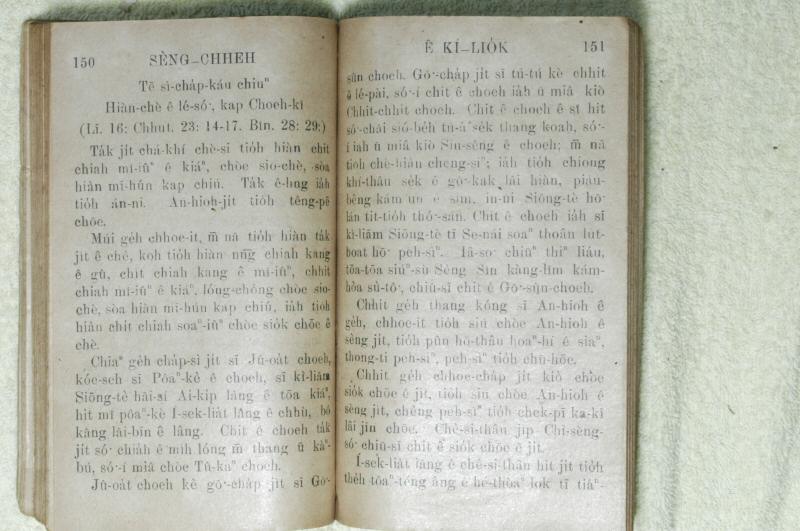 150 SÈNG–CHHEH
Tē sì-cha̍p-káu chiuⁿ
Hiàn-chè ê lé-sò͘, kap Choeh-kî
(Lī. 16: Chhut. 23: 14-17. Bîn. 28: 29:)
Ta̍k ji̍t chá-khí chè-si tio̍h hiàn chi̍t
chiah mî-iûⁿ ê kiáⁿ, chòe sio-chè, sòa
hiàn mī-hún kap chiú. Ta̍k ê-hng ia̍h
tio̍h án-ni. An-hioh-ji̍t tio̍h têng-pē
chōe.
Múi ge̍h chhoe-it, m̄ nā tio̍h hiàn ta̍k
ji̍t ê chè, koh tio̍h hiàn nn̄g chiah kang
ê gû, chi̍t chiah kang ê mî-iûⁿ, chhit
chiah mî-iûⁿ ê kiáⁿ, lóng-chóng chòe sio-
chè, sòa hiàn mī-hún kap chiú, ia̍h tio̍h
hiàn chi̍t chiah soaⁿ-iûⁿ chòe sio̍k chōe ê
chè.
Chiaⁿ ge̍h cha̍p-sì ji̍t sī Jû-oa̍t choeh,
kóe-seh sī Póaⁿ-kè ê choeh, sī kì-liām
Siōng-tè hāi-sí Ai-ki̍p lâng ê tōa kiáⁿ,
hit mî póaⁿ-kè Í-sek-lia̍t lâng ê chhù, bô
kâng lāi-bīn ê lâng. Chit ê choeh ta̍k
ji̍t só͘ chia̍h ê mi̍h lóng m̄ thang ū kàⁿ-
bú, só͘-í miâ chòe Tû-kàⁿ choeh.
Jû-oa̍t choeh kè gō͘-cha̍p ji̍t sī Gō͘-
Ê KÍ–LIO̍K 151
sûn choeh. Gō͘-cha̍p ji̍t sī tú-tú kè chhit
ê lé-pài, só͘-í chit ê choeh ia̍h ū miâ kiò
Chhit-chhit choeh. Chit ê choeh ê sî hit
só͘-chāi sió-be̍h tú-á se̍k thang koah, só͘-
í ia̍h ū miâ kiò Sin-sêng ê choeh; m̄ nā
tio̍h chè-hiàn cheng-siⁿ; ia̍h tio̍h chiong
khí-thâu se̍k ê gō͘-kak lâi hiàn, piáu-
bêng kám un ê sim, in-ūi Siōng-tè hō͘
lán tit-tio̍h thó͘-sán. Chit ê choeh ia̍h sī
kì-liām Siōng-tè tī Se-nái soaⁿ thoân lu̍t-
hoat hō͘ peh-sìⁿ. Iâ-so͘ chiūⁿ thiⁿ liáu,
tōa-tōa siúⁿ-sù Sèng Sîn kàng-lîm kám-
hòa sù-tô͘, chiū-sī chit ê Gō͘-sûn-choeh.
Chhit ge̍h thang kóng sī An-hioh ê
ge̍h, chhoe-it tio̍h siú chòe An-hioh ê
sèng ji̍t, tio̍h pûn hō-thâu hoaⁿ-hí ê siaⁿ,
thong-ti peh-sìⁿ, peh-sìⁿ tio̍h chū-hōe.
Chhit ge̍h chhoe-cha̍p ji̍t kiò chòe
sio̍k chōe ê ji̍t, tio̍h siú chòe An-hioh ê
sèng ji̍t, chèng peh-sìⁿ tio̍h chek-pī ka-kī
lâi jīn chōe. Chè-si-thâu ji̍p Chì-sèng-
só͘ chiū-sī chit ê sio̍k chōe ê ji̍t.
Í-sek-lia̍t lâng ê chè-si-thâu hit ji̍t tio̍h
the̍h tōaⁿ-téng ê hé-thòaⁿ lok tī tiáⁿ-